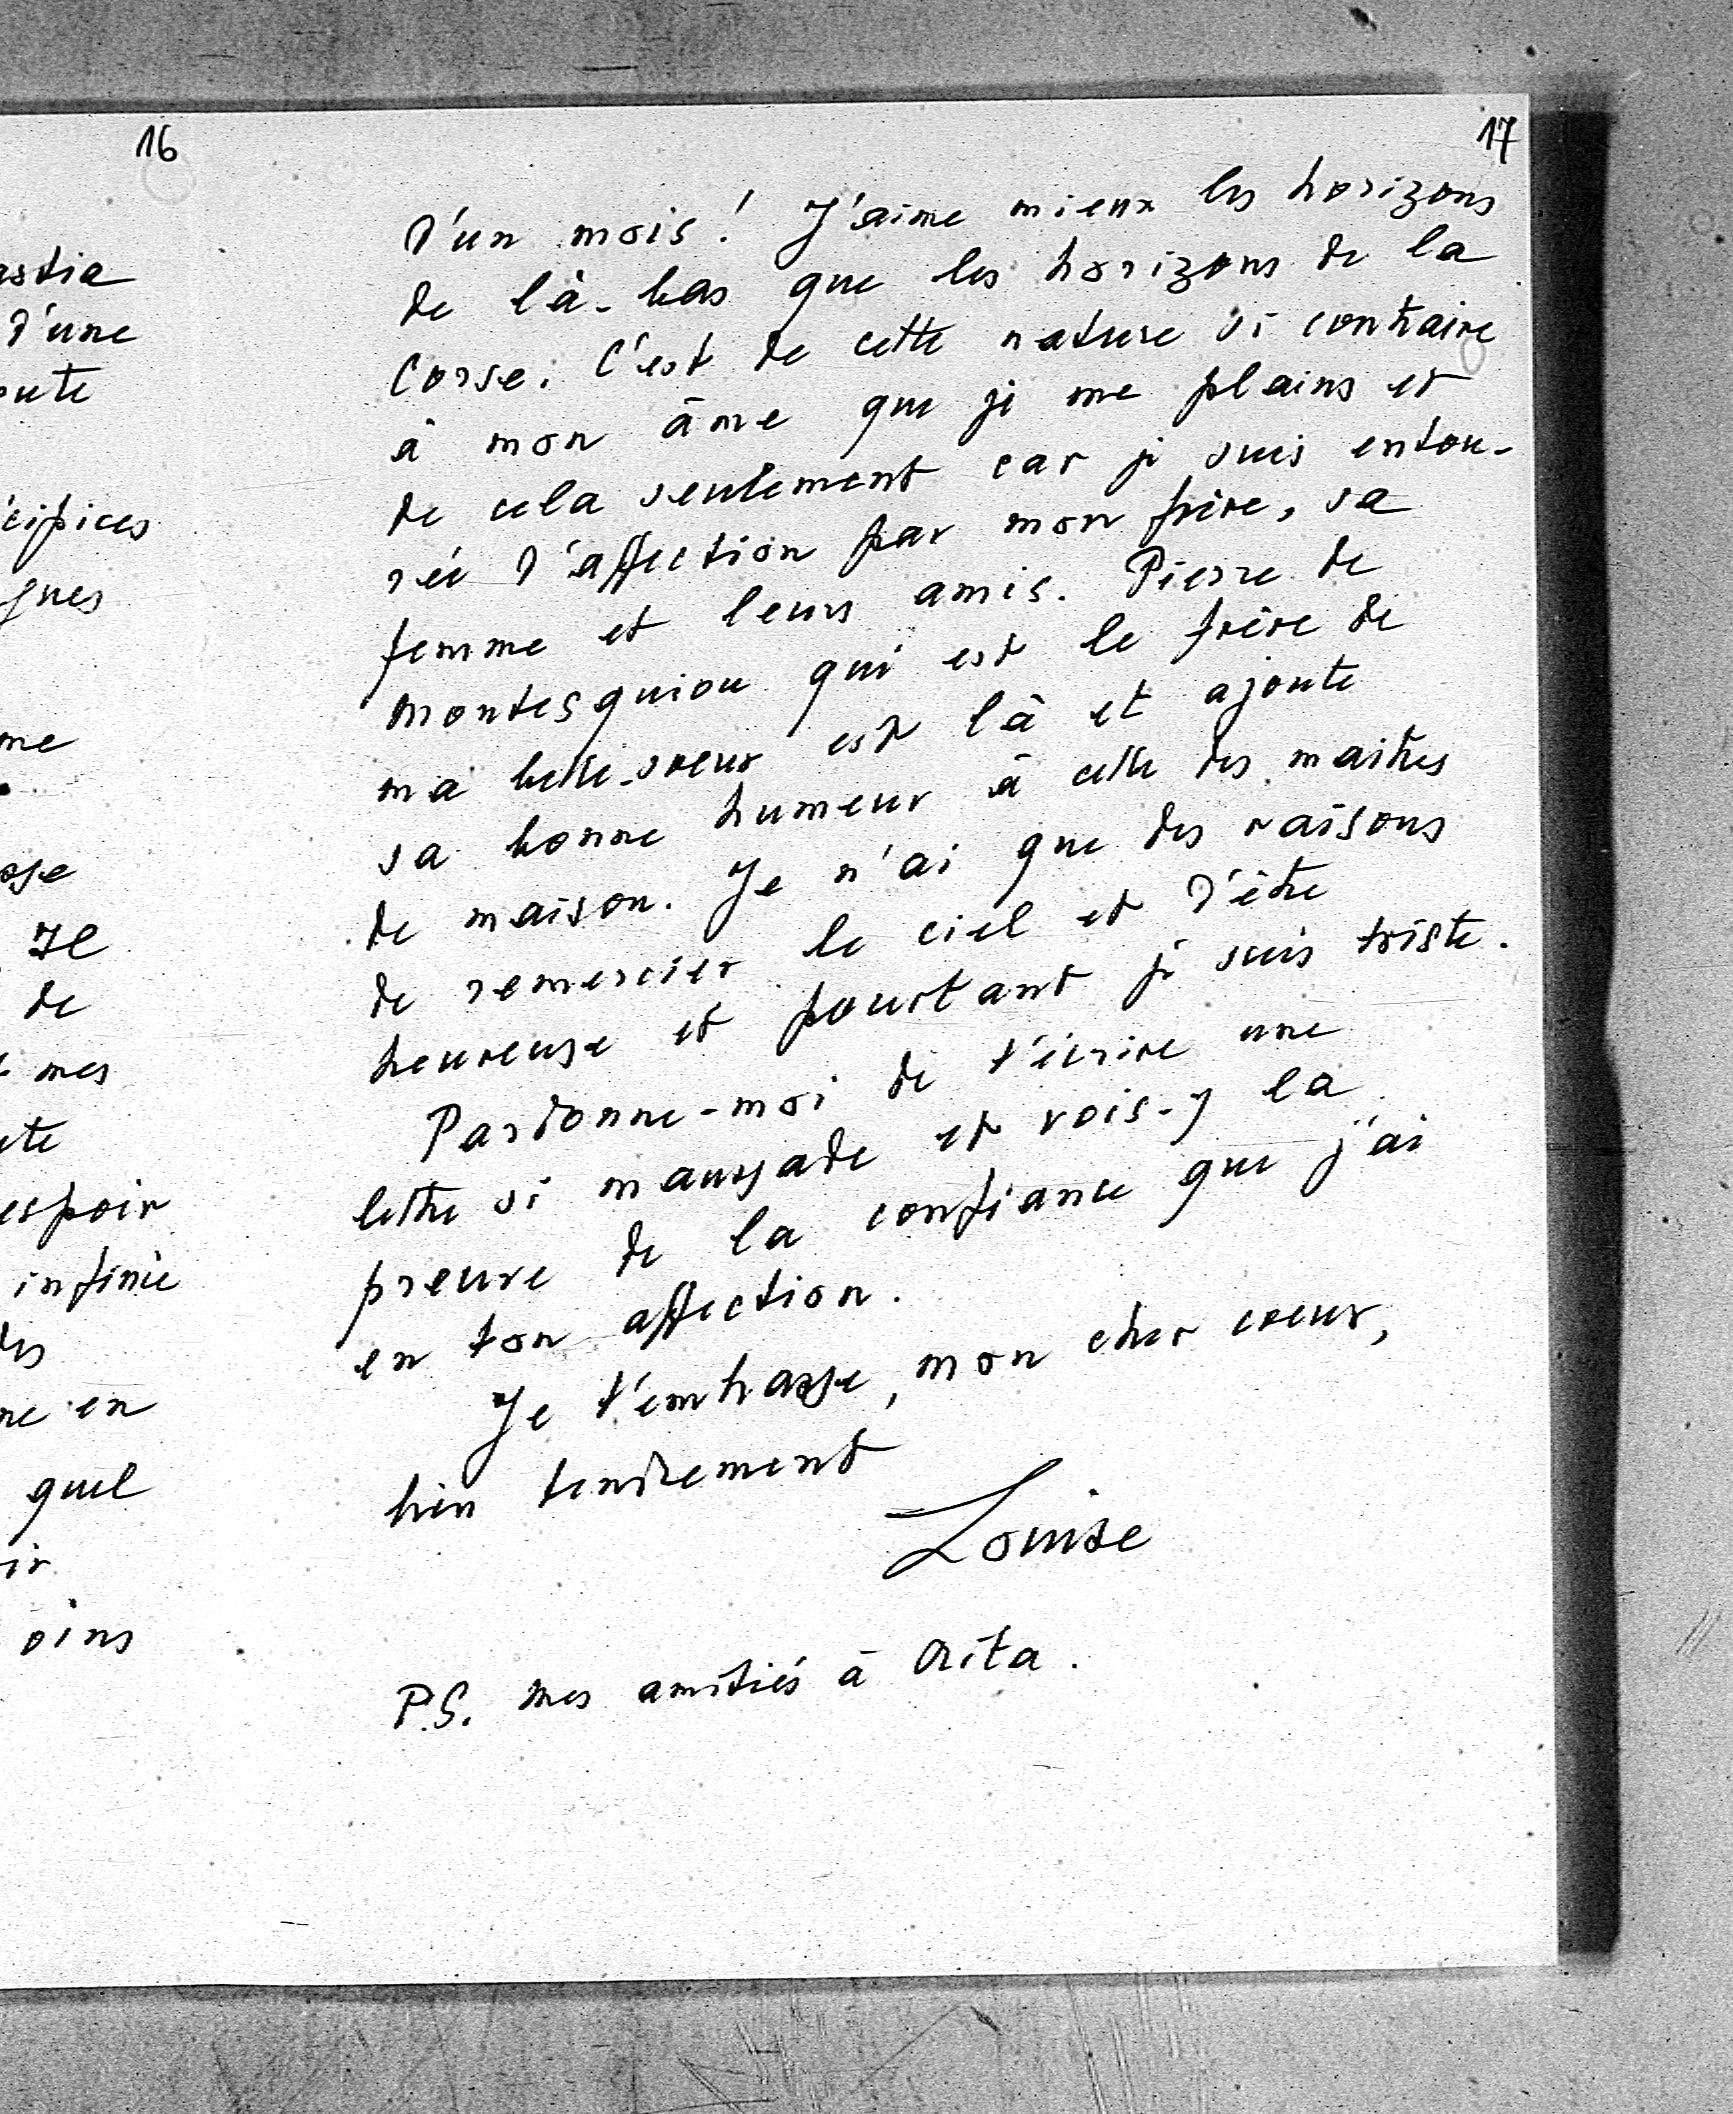 16
astia
d'une
oute
écipices
gnes
me
osse
Il
de
mes
ete
espoir
infinie
des
ne en
quel
oir
oins
17
d'un mois! J'aime mieux les horizons
de là-bas que les horizons de la
Corse. C'est de cette nature si contraire
à mon âme que je me plains et
de cela seulement car je suis entou-
rée d'affection par mon frère, sa
femme et leurs amis. Pierre de
Montesquiou qui est le frère de
ma belle-soeur est là et ajoute
sa bonne humeur à celle des maitres
de maison. Je n'ai que des raisons
de remercier le ciel et d'être
heureuse et pourtant je suis triste.
Pardonne-moi de t'écrire une
lettre si maussade et vois-y la
preuve de la confiance que j'ai
en ton affection.
Je t'embrasse, mon cher coeur,
bien tendrement
Louise
P.S. Mes amitiés à Rita.